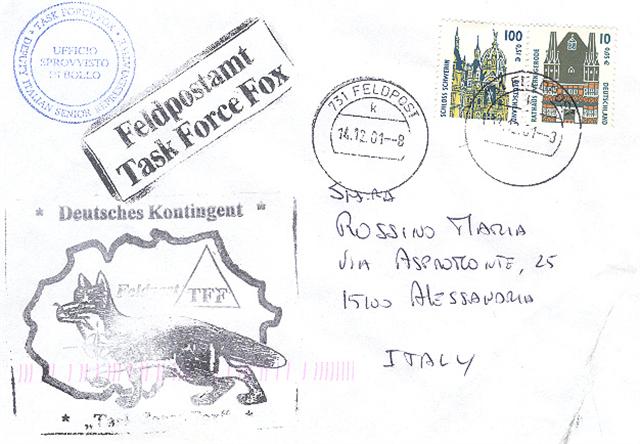 * TASK FORCE FOX *
DEPUTY ITALIAN SENIOR
UFFICIO
SPROVVISTO
DI BOLLO
Feldpostamt
Task Force Fox
731 FELDPOST
k
14.12.01--8
100
0,51€
SCHLOSS SCHWERIN
DEUTSCHLAND
10
0,05€
RATHAUS WERNIGERODE
DEUTSCHLAND
* Deutsches Kontingent *
Feldpost
TFF
* "Task Force Fox" *
ROSSINO MARIA
VIA ASPROMONTE, 25
15100 ALESSANDRIA
ITALY